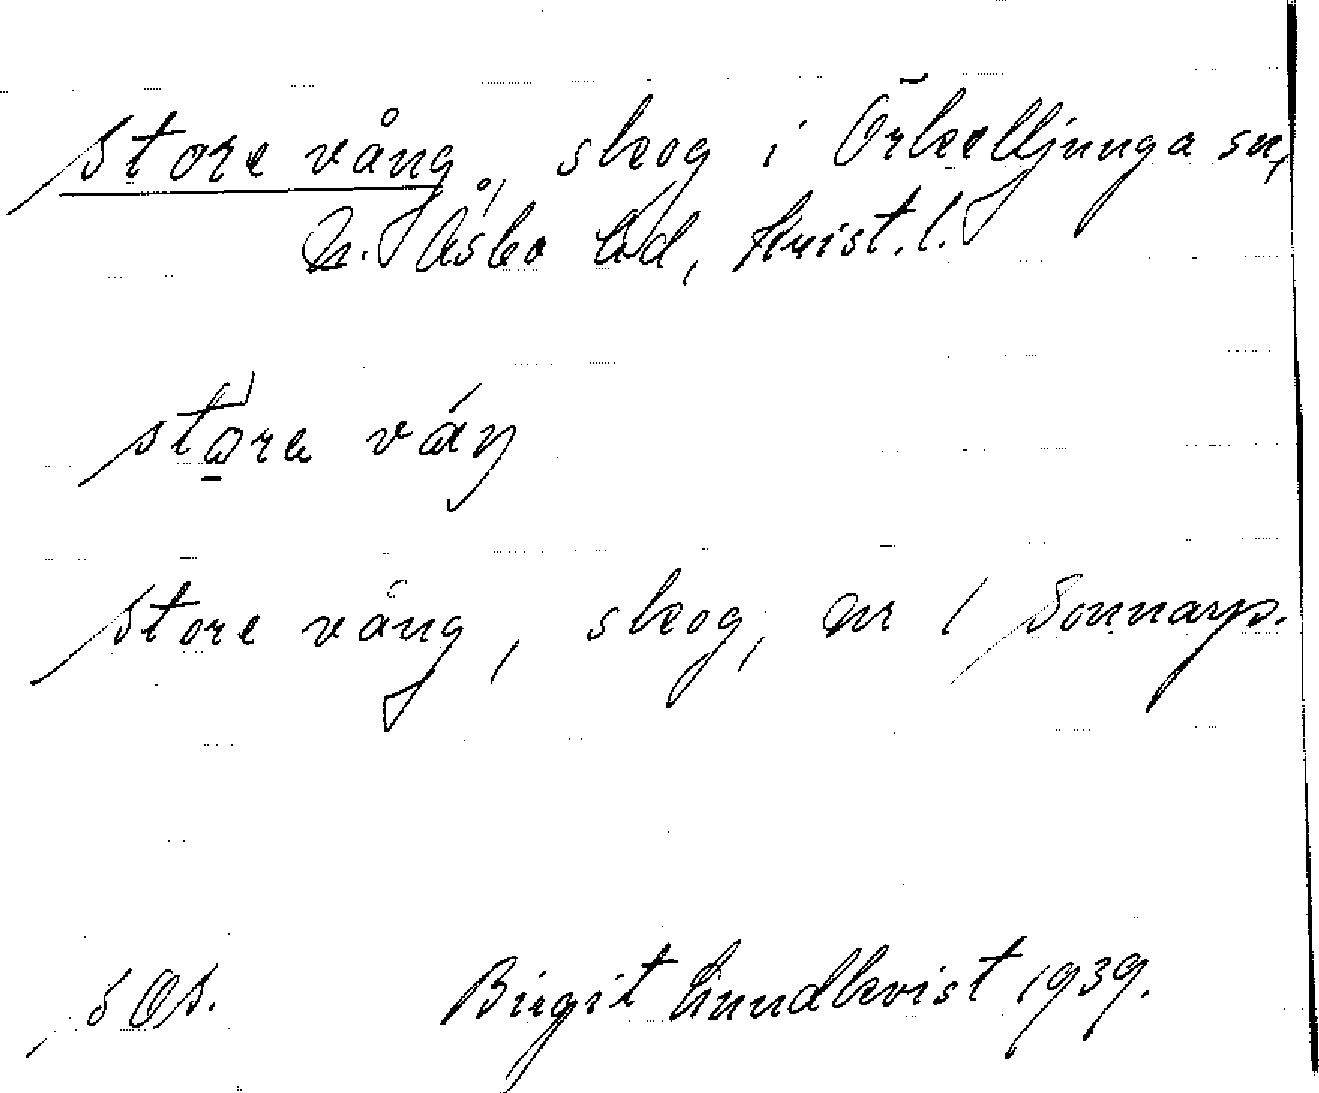 Store vång, skog i Örkelljunga sn,
N. Åsbo hd, Krist. l.
store våŋ
Store vång, skog, nr 1 Sonnarp.
Birgit Lundkvist 1939.